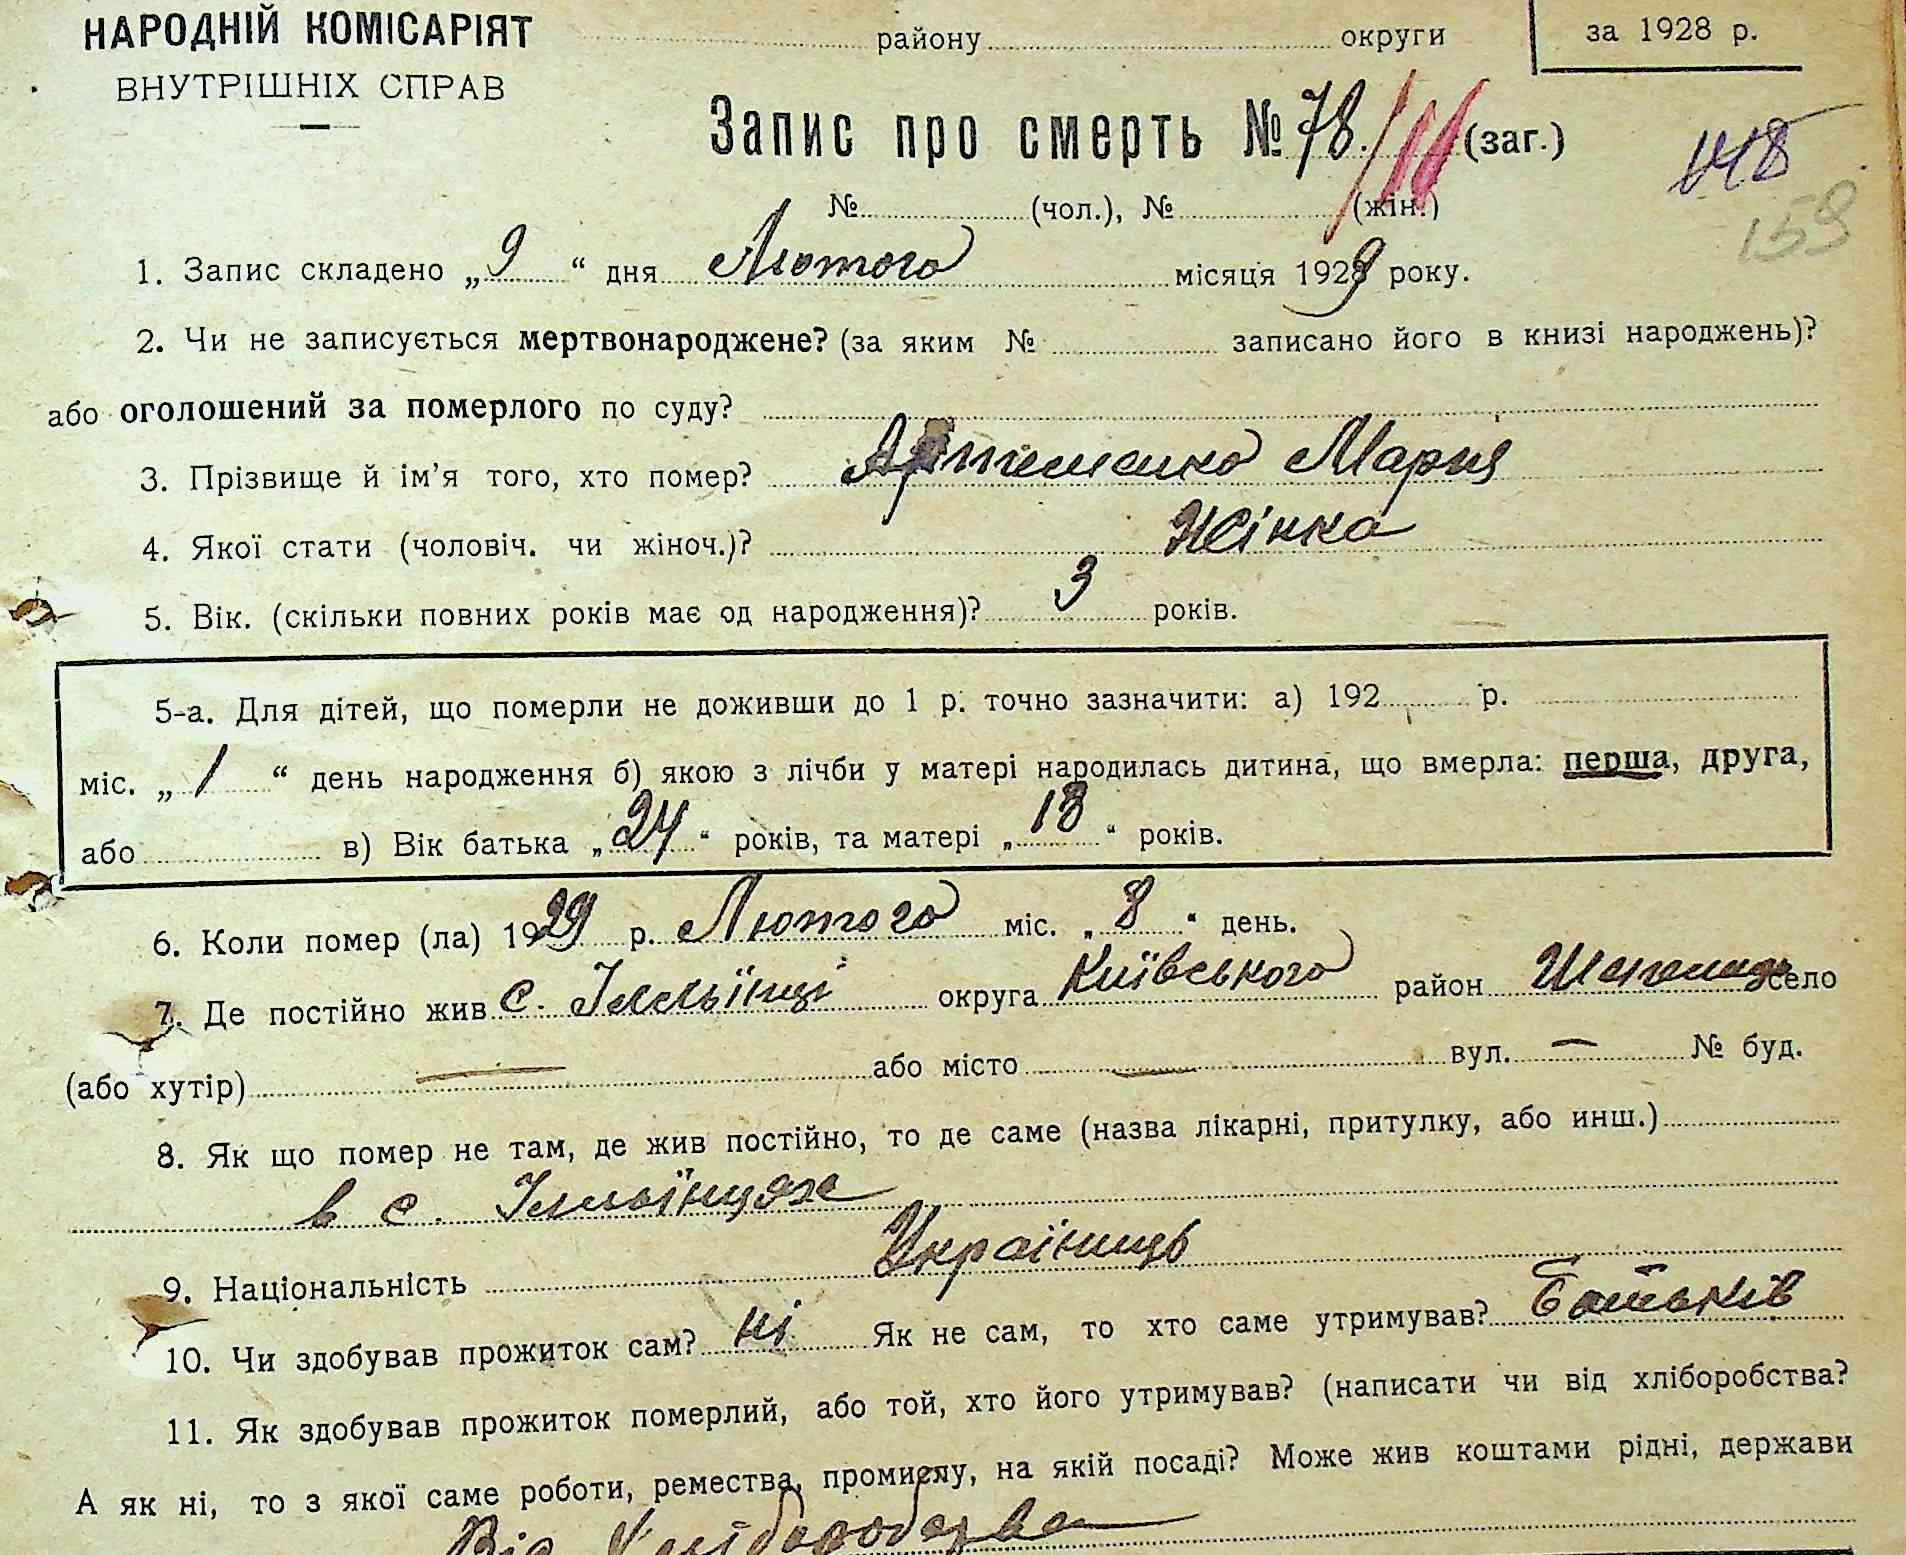 НАРОДНІЙ КОМІСАРІЯТ
ВНУТРІШНІХ СПРАВ
району округи
за 1928 р.
Запис про смерть № 78./11 (заг.)
148
159
№ (чол.), № (жін.)
1. Запис складено „9“ дня Лютого місяця 1929 року.
2. Чи не записується мертвонароджене? (за яким № записано його в книзі народжень)?
або оголошений за померлого по суду?
3. Прізвище й ім’я того, хто помер? Артеменко Мария
4. Якої стати (чоловіч. чи жіноч.)? Жінка
5. Вік. (скільки повних років має од народження)? 3 років.
5-а. Для дітей, що померли не доживши до 1 р. точно зазначити: а) 192 р.
міс. „1“ день народження б) якою з лічби у матері народилась дитина, що вмерла: перша, друга,
або в) Вік батька „24“ років, та матері „18“ років.
6. Коли помер (ла) 1929 р. Лютого міс. „8“ день.
7. Де постійно жив с. Ілльїнці округа Київського район село
(або хутір) — або місто — вул. — № буд.
8. Як що помер не там, де жив постійно, то де саме (назва лікарні, притулку, або инш.)
в с. Ілльїнцях
9. Національність Українець
10. Чи здобував прожиток сам? ні Як не сам, то хто саме утримував? Батьків
11. Як здобував прожиток померлий, або той, хто його утримував? (написати чи від хліборобства?
А як ні, то з якої саме роботи, ремества, промислу, на якій посаді? Може жив коштами рідні, держави
Від Хліборобства